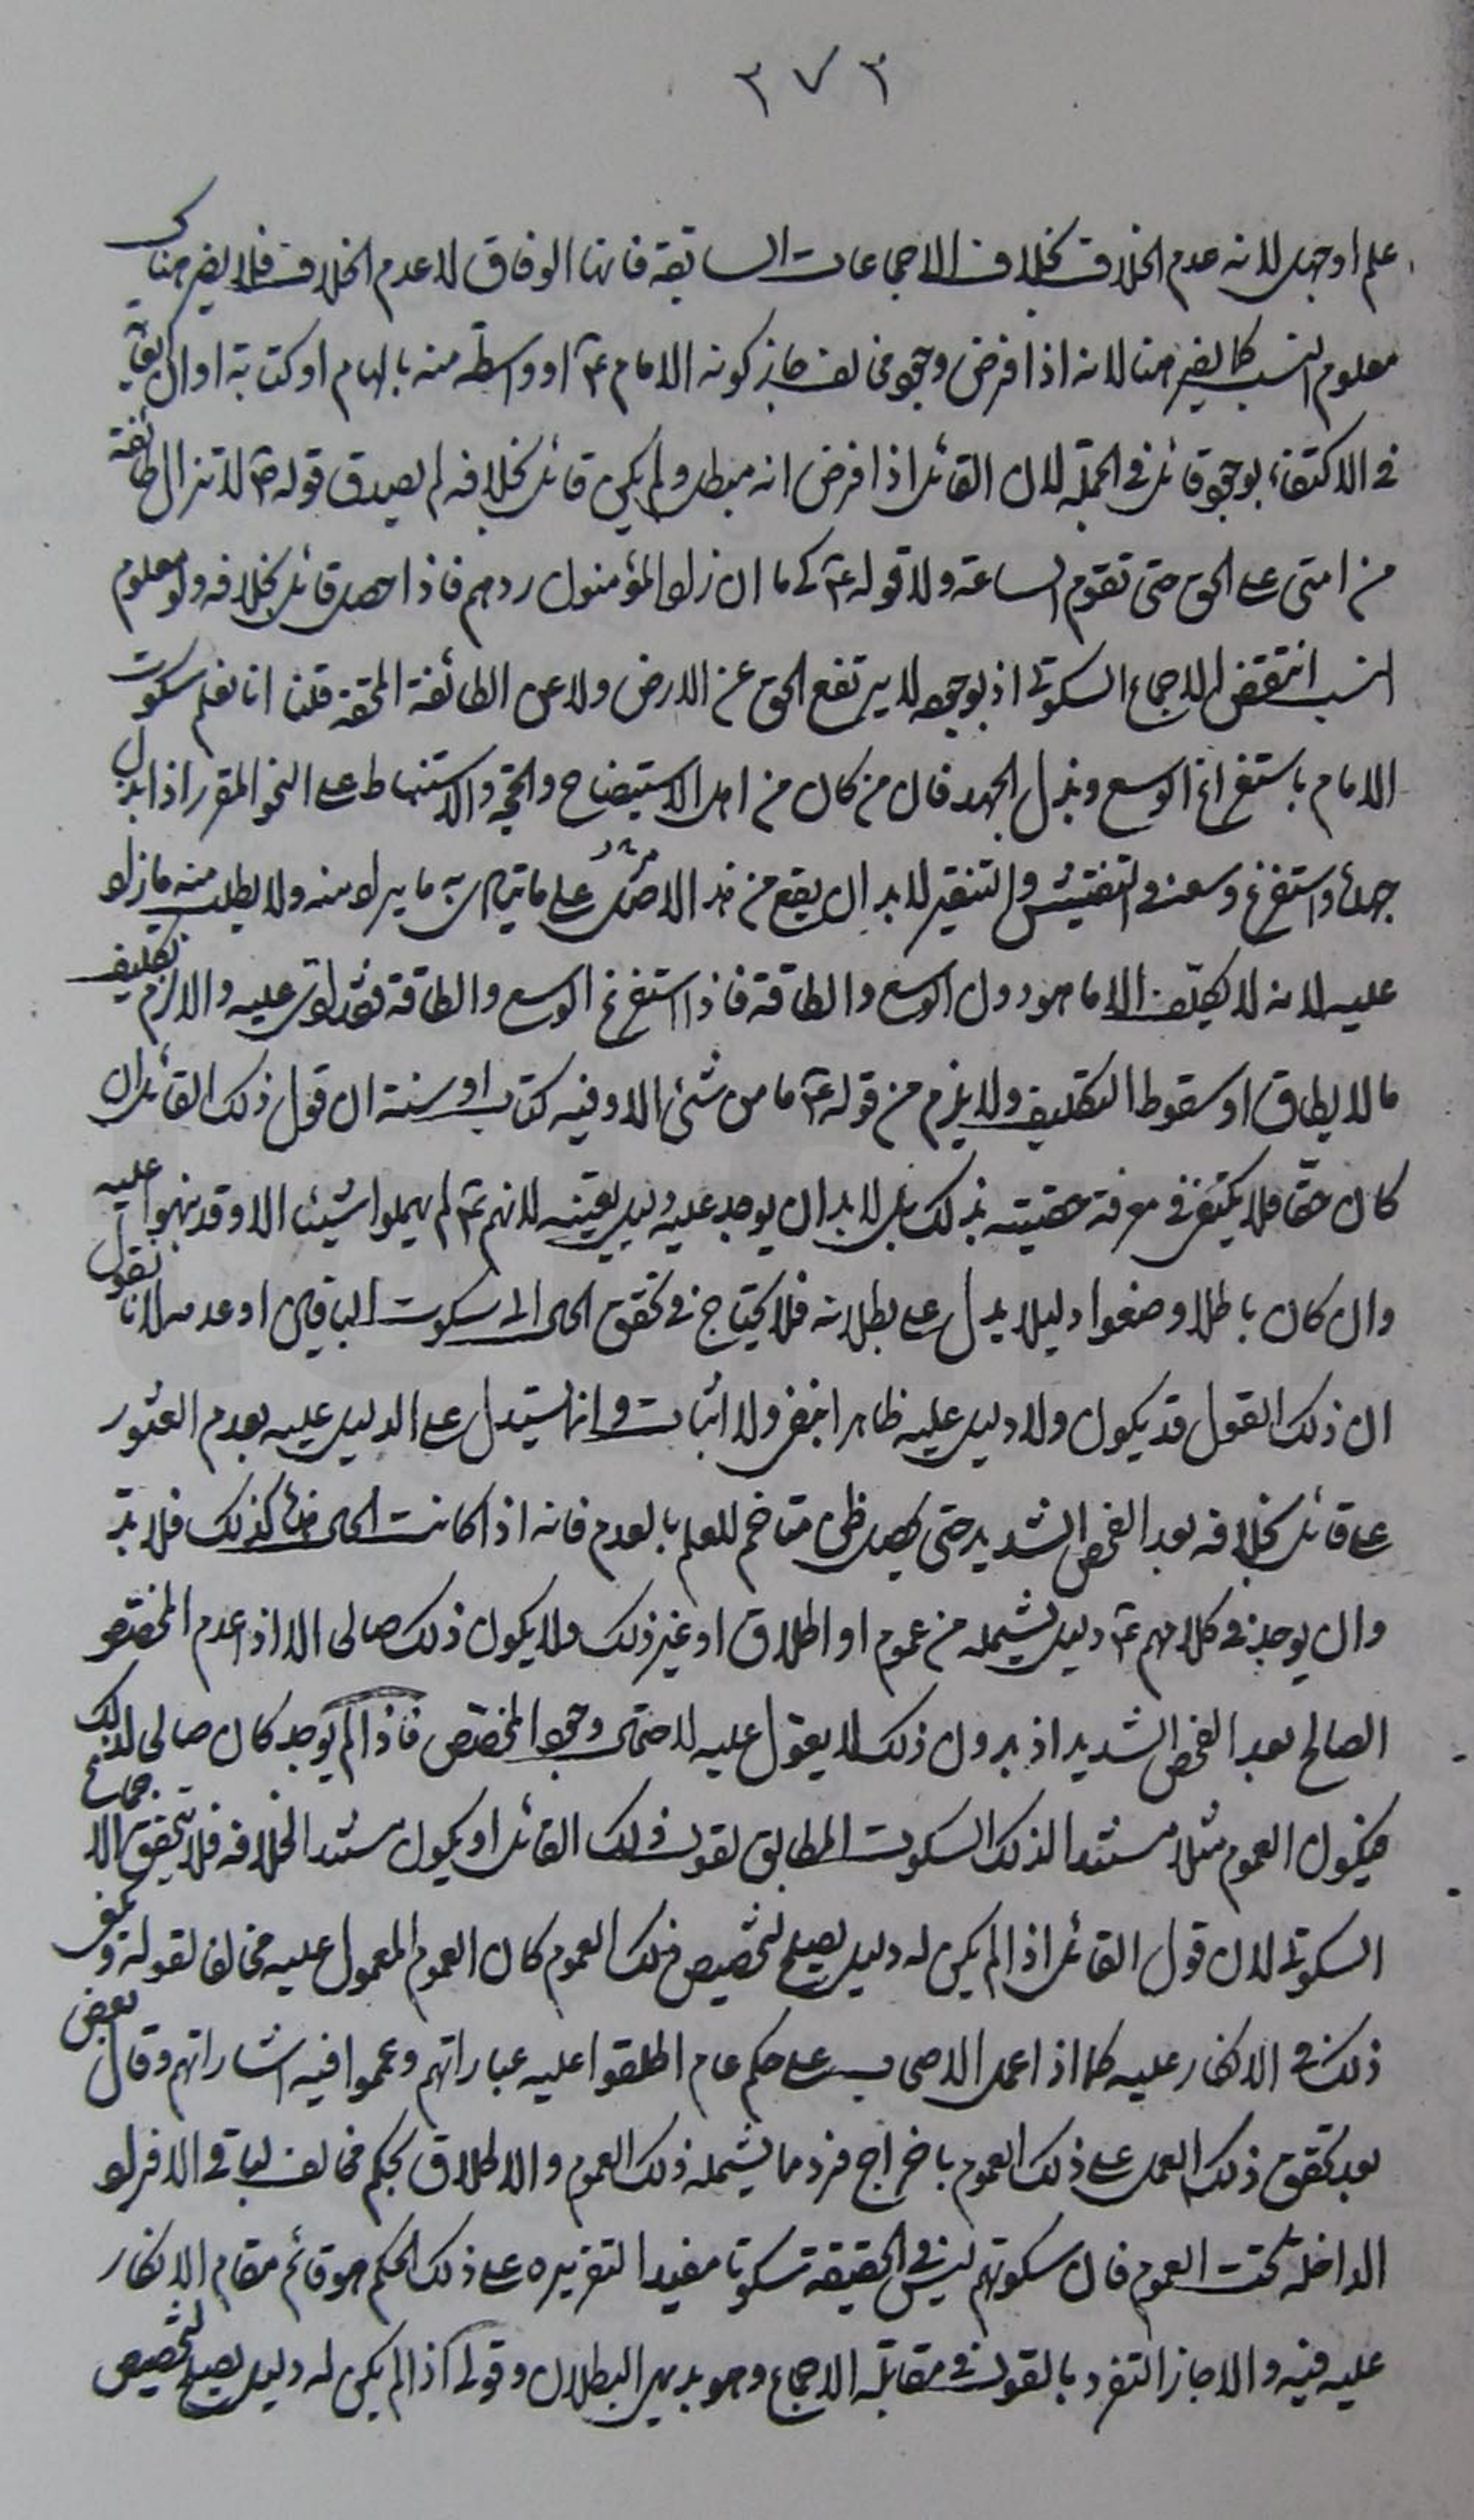 ٣٧٣
علم او جهل لانه عدم الخلاف بخلاف الاجماعات السابقة فانها الوفاق لا عدم الخلاف فلا يضر هناك
معلوم النسب كما يضر هنا لانه اذا فرض وجود مخالف جاز كونه الامام ع او واسطة منه بالهام او كتابة او القى
في الاكتفاء بوجود قائل في الجملة لان القائل اذا فرض انه مبطل ولم يكن قائل بخلافه لم يصدق قوله ص لا تزال طائفة
من امتي على الحق حتى تقوم الساعة ولا قوله ع كي ما ان زاد المؤمنون ردهم فاذا حصل قائل بخلافه ولو معلوم
النسب انتقض الاجماع السكوتي اذ بوجوده لا يرتفع الحق عن الارض ولا عن الطائفة المحقة قلنا انا نعلم سكوت
الامام باستفراغ الوسع وبذل الجهد فان من كان من اهل الاستيضاح والحجة والاستنباط على النحو المقرر اذا بذل
جهده واستفرغ وسعه في التفتيش والتنقير لابد ان يقع من هذا الاصل على ما يتم به ما يراد منه ولا يطلب منه ما زاد
عليه لانه لا يكلف الا ما هو دون الوسع والطاقة فاذا استفرغ الوسع والطاقة فقد ادى عليه والا لزم تكليف
ما لا يطاق او سقوط التكليف ولا يلزم من قوله ع ما من شئ الا وفيه كتاب او سنة ان قول ذلك القائل ان
كان حقا فلا يكتفى في معرفة حقيته بذلك بل لابد ان يوجد عليه دليل بعينه لانهم ع لم يهملوا شيئا الا وقد نبهوا عليه
وان كان باطلا وضعوا دليلا يدل على بطلانه فلا يحتاج في تحقق الحق الى سكوت الباقين او عدمه لانا نقول
ان ذلك القول قد يكون ولا دليل عليه ظاهر بنفي ولا اثبات وانما يستدل على الدليل عليه بعدم العثور
على قائل بخلافه بعد الفحص الشديد حتى يحصل ظن متاخم للعلم بالعدم فانه اذا كانت الحال هذه كذلك فلا بد
وان يوجد في كلامهم ع دليل يشمله من عموم او اطلاق او غير ذلك ولا يكون ذلك صالحا الا اذا عدم المخصص
الصالح بعد الفحص الشديد اذ بدون ذلك لا يعول عليه لاحتمال وجود المخصص فاذا لم يوجد كان صالحا لذلك
فيكون العموم مثلا مستندا لذلك السكوت المطابق لقول ذلك القائل او يكون مستندا لخلافه فلا يتحقق الاجماع
السكوتي لان قول القائل اذا لم يكن له دليل يصلح لتخصيص ذلك العموم كان العموم المعمول عليه مخالفا لقوله ويكفى
ذلك في الانكار عليه كما اذا عمل الاصحاب على حكم عام اطلقوا عليه عباراتهم وعموا فيه اشاراتهم وقال بعض
بعد تحقق ذلك العمل على ذلك العموم باخراج فرد مما يشمله ذلك العموم والاطلاق بحكم مخالف لباقي الافراد
الداخلة تحت العموم فان سكوتهم ليس في الحقيقة سكوتا مفيدا لتقريره على ذلك الحكم هو قائم مقام الانكار
عليه فيه والا جاز التفرد بالقول في مقابلة الاجماع وهو بديهي البطلان وقولي اذا لم يكن له دليل يصلح لتخصيص